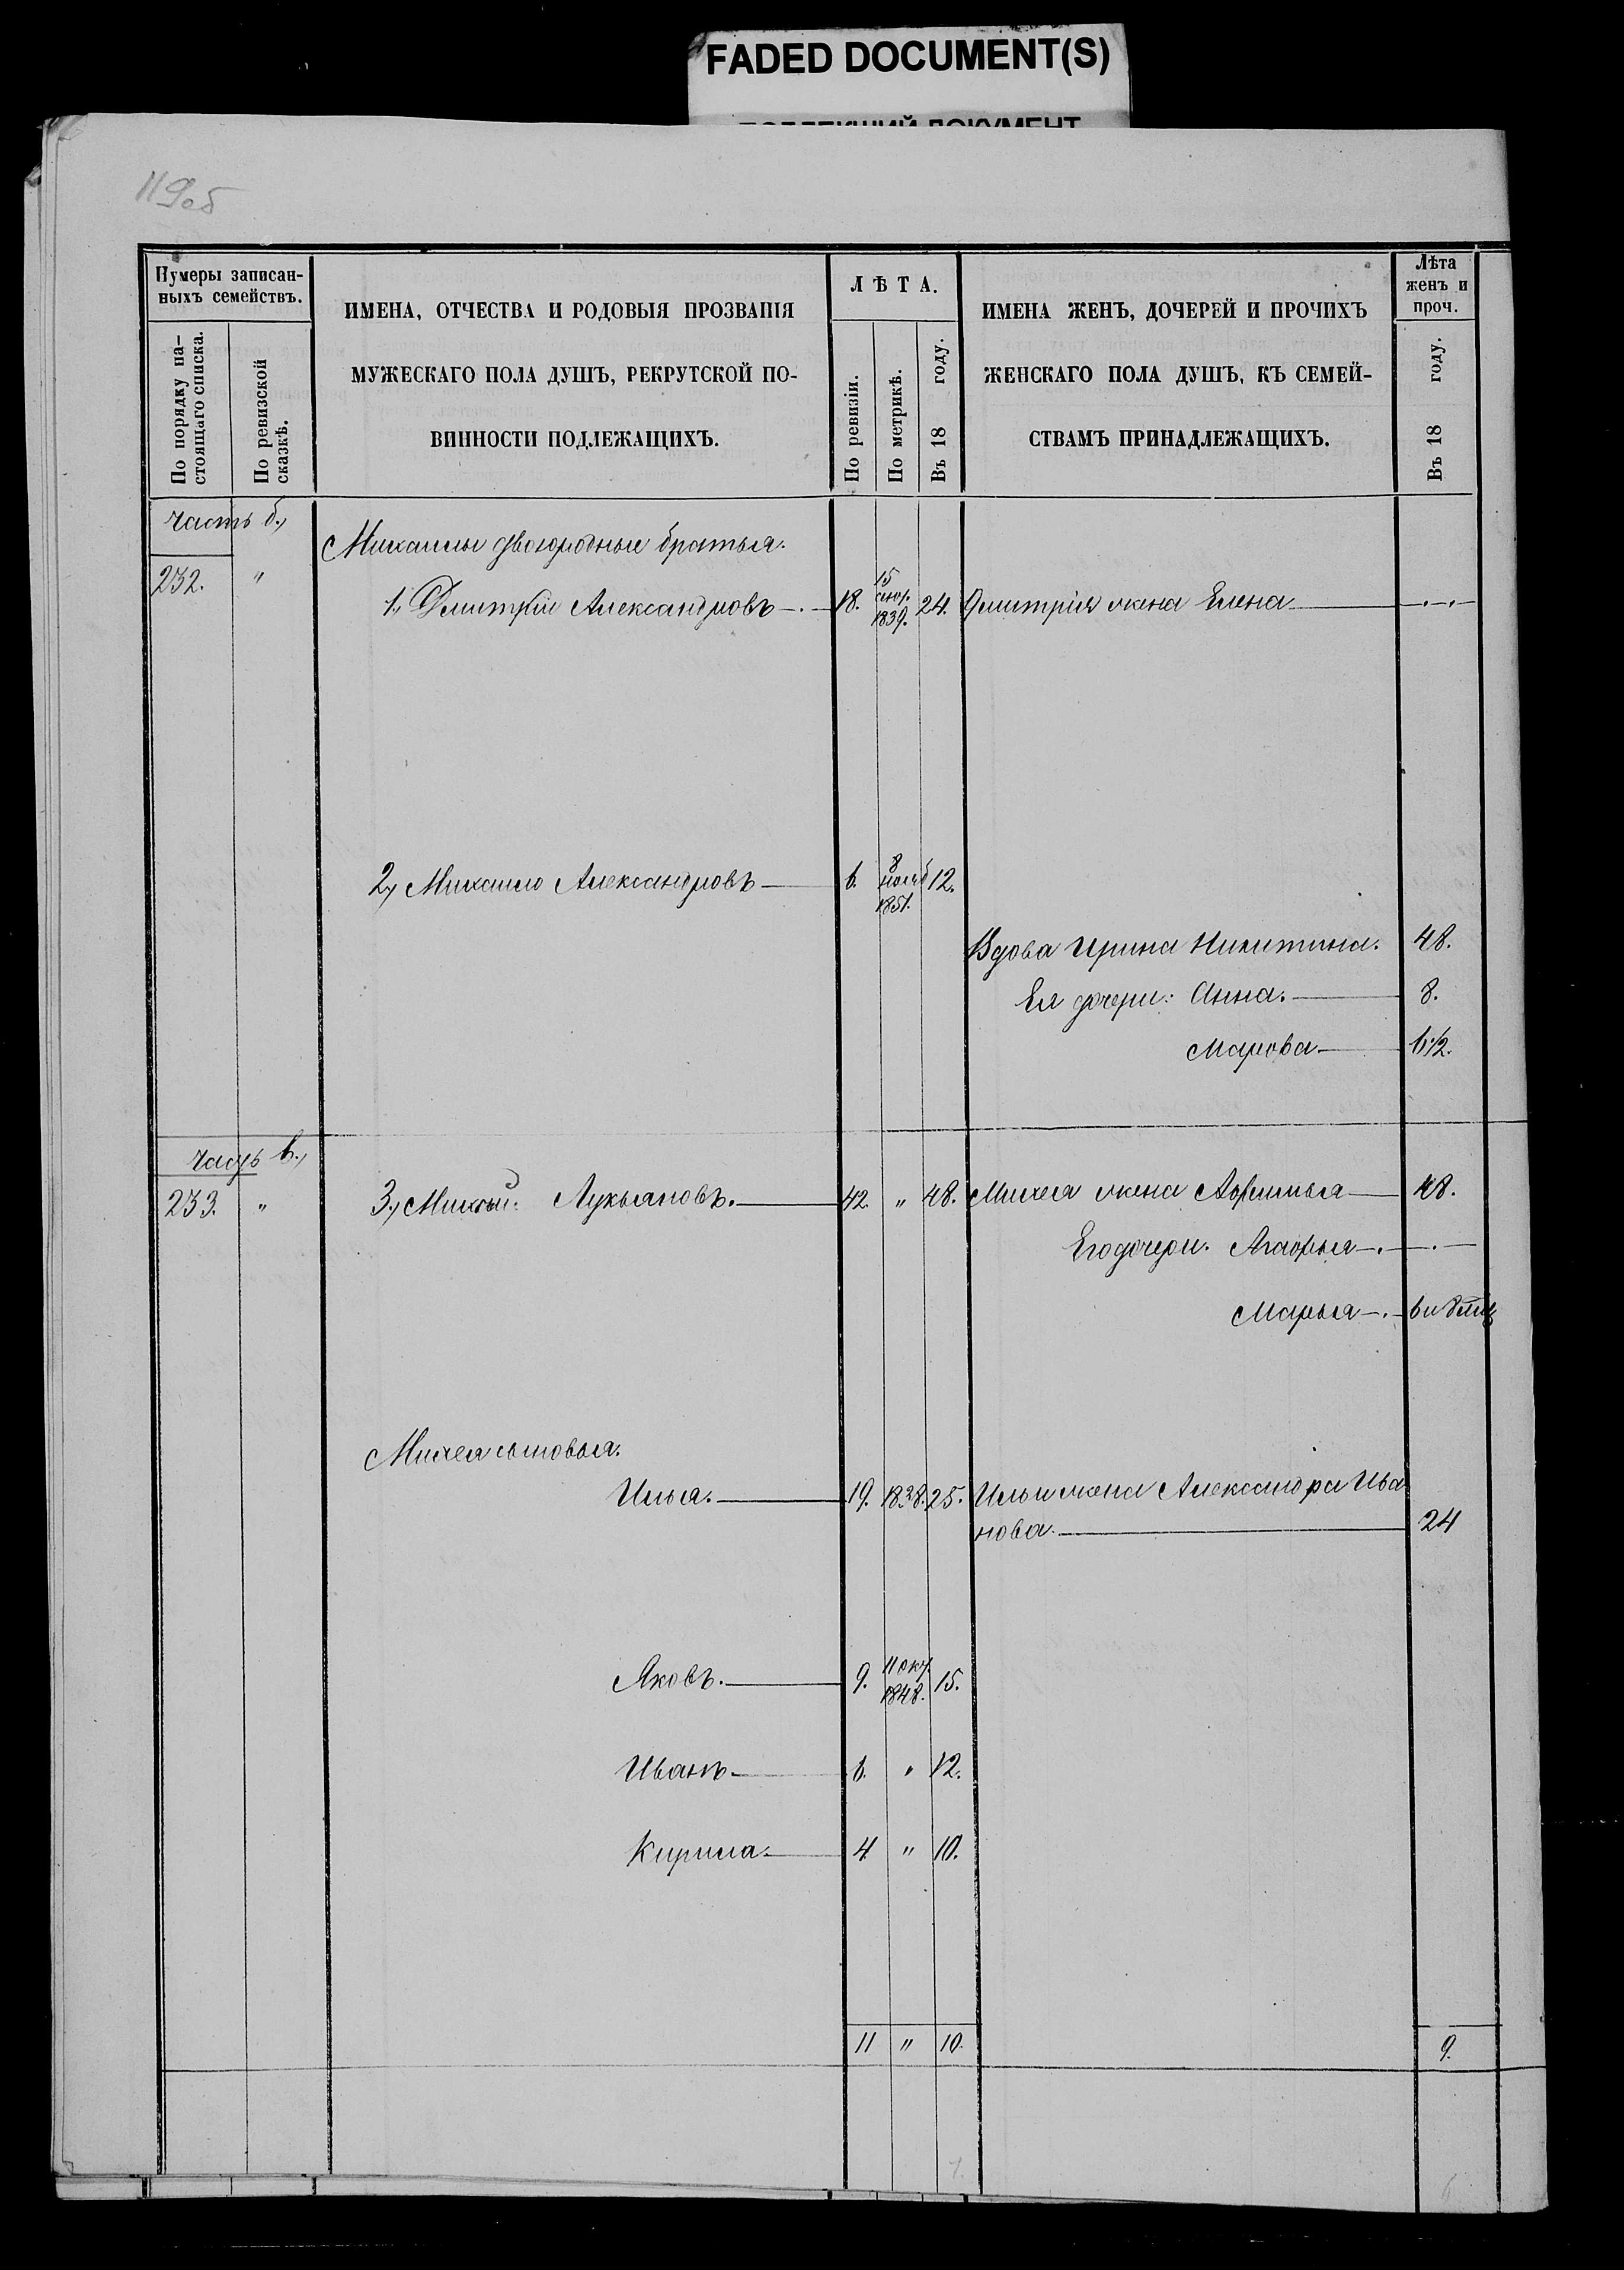 FADED DOCUMENT(S)
119об
Нумеры записан-
ныхъ семействъ.
По порядку на-
стоящаго списка.
По ревизской
сказкѣ.
ИМЕНА, ОТЧЕСТВА И РОДОВЫЯ ПРОЗВАНІЯ
МУЖЕСКАГО ПОЛА ДУШЪ, РЕКРУТСКОЙ ПО-
ВИННОСТИ ПОДЛЕЖАЩИХЪ.
ЛѢТА.
По ревизіи.
По метрикѣ.
Въ 18 году.
ИМЕНА ЖЕНЪ, ДОЧЕРЕЙ И ПРОЧИХЪ
ЖЕНСКАГО ПОЛА ДУШЪ, КЪ СЕМЕЙ-
СТВАМЪ ПРИНАДЛЕЖАЩИХЪ.
Лѣта
женъ и
проч.
Въ 18 году.
часть б.,
Михаилы двоюродные братья.
232. " 1., Дмитрій Александровъ 18. 15 1839. 24. Дмитрія жена Елена
2., Михайло Александровъ 6. 8 нояб 1851. 12.
Вдова Ирина Никитина. 48.
Ея дочери: Анна. 8.
Марфа 6 1/2.
часть в.,
233. " 3., Михей Лукьяновъ. 42. " 48. Михея жена Афимья 48.
Его дочери. Агафья
Марья 6 и 8 мѣц
Михея сыновья.
Илья. 19. 1838. 25. Ильи жена Александра Ива
нова. 24
Яковъ. 9. 11 окт. 1848. 15.
Иванъ 6. " 12.
Кирила. 4 " 10.
11 " 10. 9.